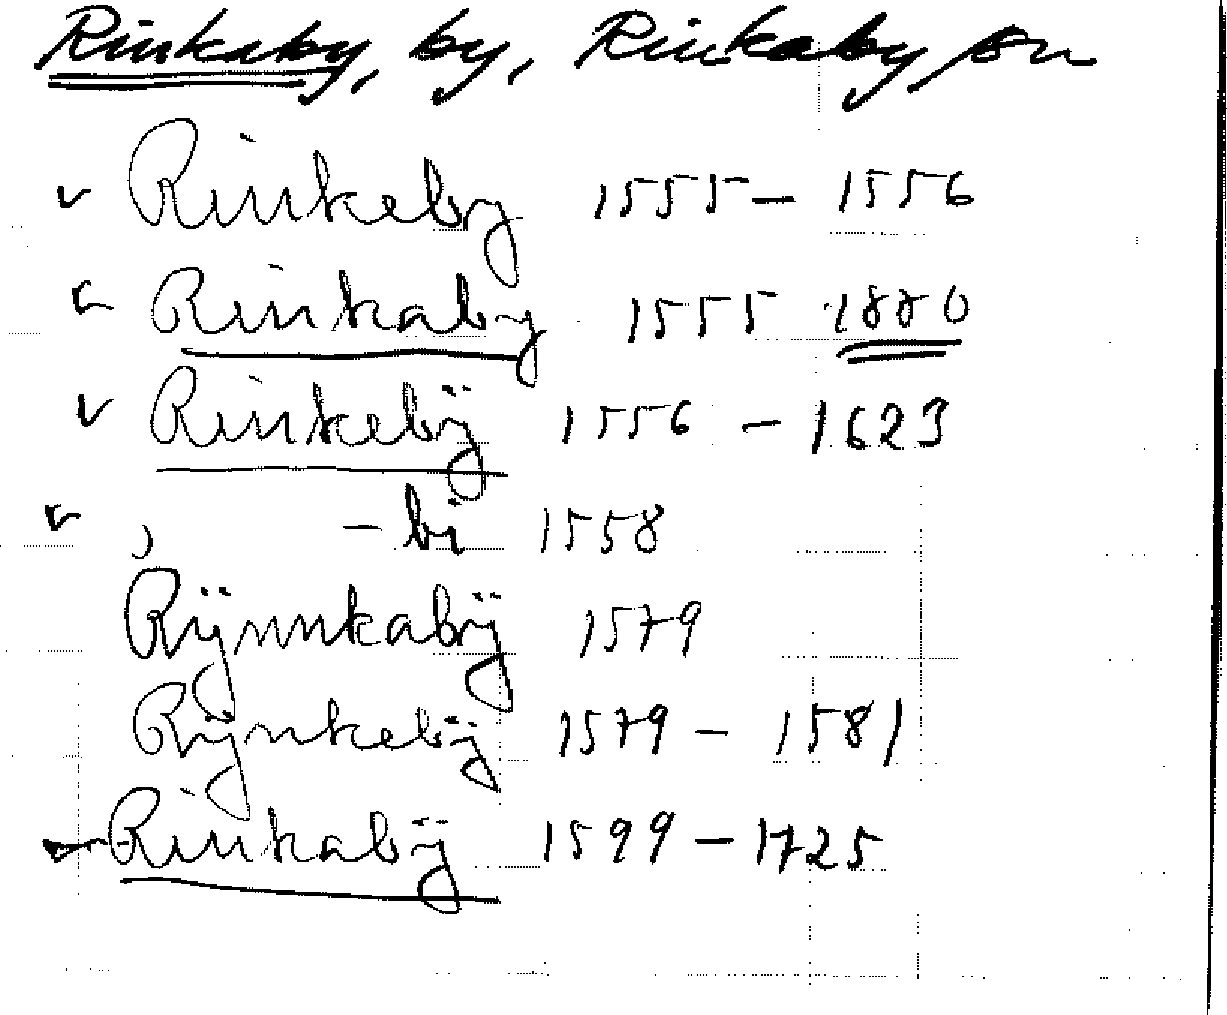 Rinkaby, by, Rinkaby sn
Rinkeby 1555 – 1556
Rinkaby 1555 1880
Rinkebÿ 1556 – 1623
, – bi 1558
Rÿnnkabÿ 1579
Rÿnkebÿ 1579 – 1581
Rinkabÿ 1599 – 1725